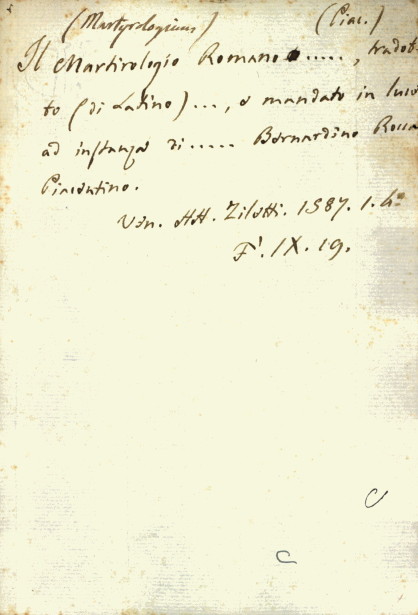 (Martyrologium) (Piac.)
Il Martirologio Romano ....., tradot-
to (di Latino) ..., e mandato in luce
ad instanza di ..... Bernardino Rocca
Piacentino.
Ven. HH. Ziletti. 1587. 1. 4°
F. IX. 19.